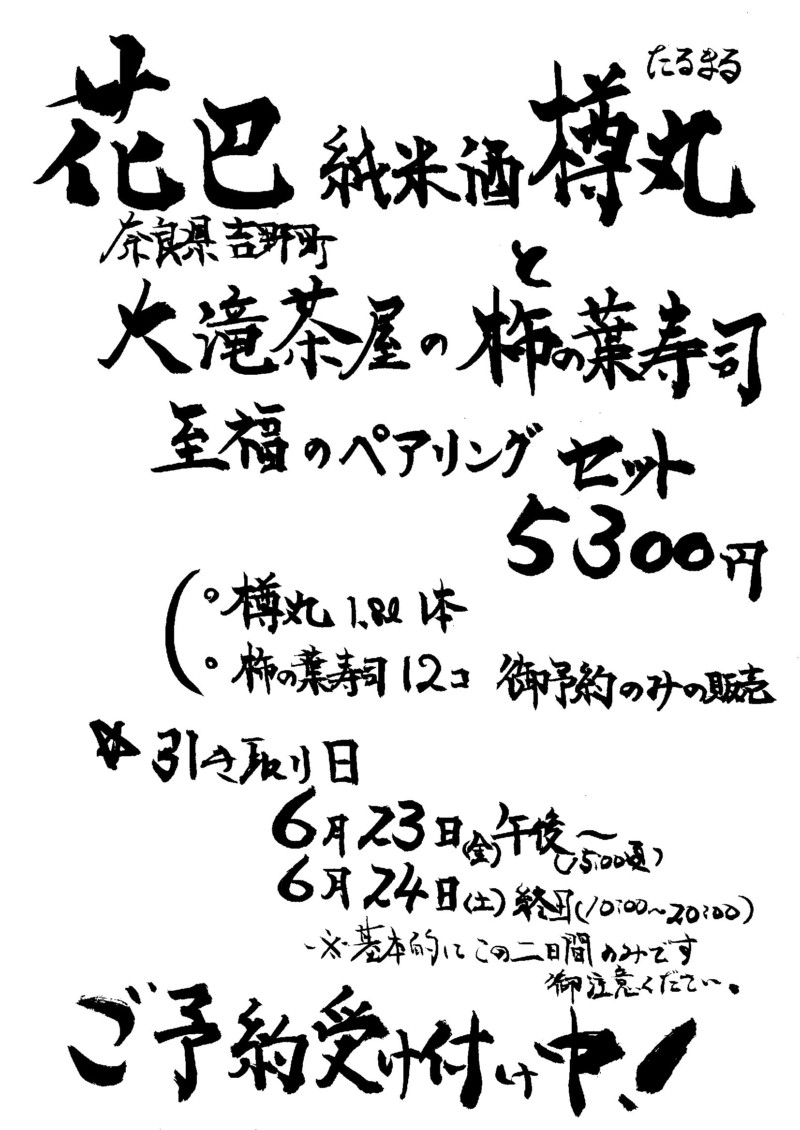 たるまる
花巴 純米酒 樽丸
奈良県吉野町
と
大滝茶屋の 柿の葉寿司
至福のペアリング セット
5300円
(。樽丸 1.8ℓ 1本
。柿の葉寿司 12コ 御予約のみの販売
☆ 引き取り日
6月23日(金)午後〜(15:00頃)
6月24日(土)終日(10:00〜20:00)
※基本的にこの二日間のみです
御注意ください。
ご予約受け付け中!